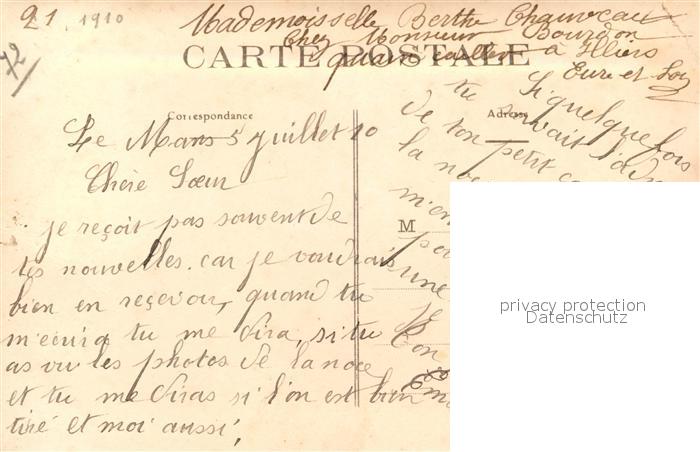 21 1910
72
Mademoisselle Berthe Chauveau
Chez Monsieur Bourdon
CARTE POSTALE
à Illiers
Eure et Loir
Correspondance
Adresse
Le Mans 5 juillet 10
Chère Sœur
je reçoit pas souvent de
tes nouvelles. car je voudrais
bien en reçevoir, quand tu
m'ecrira tu me dira, si tu
as vu les photos de la noce
et tu me diras si l'on est bien
tiré et moi aussi,
Si quelquefois
tu avait l'adr
de ton petit ca
la no
m'en
M
po
une
je
Ton
privacy protection
Datenschutz